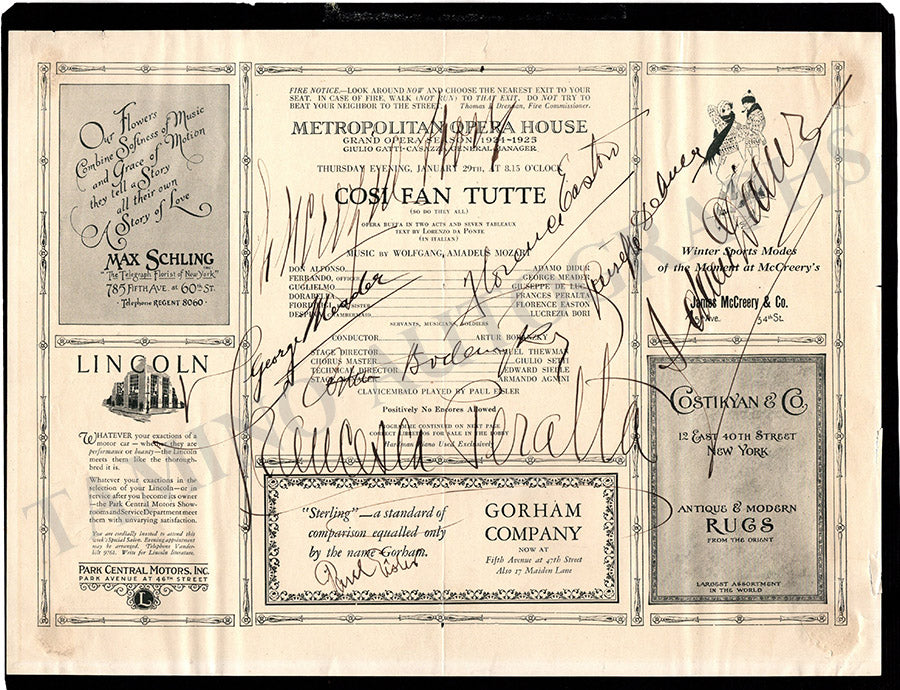 Our Flowers
Combine Softness of Music
and Grace of Motion
they tell a Story
all their own
A Story of Love
MAX SCHLING
"The Telegraph Florist of New York"
785 FIFTH AVE. at 60TH ST.
Telephone REGENT 8060
LINCOLN
WHATEVER your exactions of a
motor car — whether they are
performance or beauty — the Lincoln
meets them like the thorough-
bred it is.
Whatever your exactions in the
selection of your Lincoln — or in
service after you become its owner
— the Park Central Motors Show-
rooms and Service Department meet
them with unvarying satisfaction.
You are cordially invited to attend this
week's Special Salon. Evening appointment
may be arranged. Telephone Vander-
bilt 9761. Write for Lincoln literature.
PARK CENTRAL MOTORS, INC.
PARK AVENUE AT 46TH STREET
L
FIRE NOTICE.—LOOK AROUND NOW AND CHOOSE THE NEAREST EXIT TO YOUR
SEAT. IN CASE OF FIRE, WALK (NOT RUN) TO THAT EXIT. DO NOT TRY TO
BEAT YOUR NEIGHBOR TO THE STREET. Thomas J. Drennan, Fire Commissioner.
METROPOLITAN OPERA HOUSE
GRAND OPERA SEASON 1924-1925
GIULIO GATTI-CASAZZA, GENERAL MANAGER.
THURSDAY EVENING, JANUARY 29TH, AT 8.15 O'CLOCK
COSI FAN TUTTE
(SO DO THEY ALL)
OPERA BUFFA IN TWO ACTS AND SEVEN TABLEAUX
TEXT BY LORENZO DA PONTE
(IN ITALIAN)
MUSIC BY WOLFGANG AMADEUS MOZART
DON ALFONSO ADAMO DIDUR
FERRANDO, OFFICER GEORGE MEADER
GUGLIELMO GIUSEPPE DE LUCA
DORABELLA FRANCES PERALTA
FIORDILIGI SISTER FLORENCE EASTON
DESPINA CHAMBERMAID LUCREZIA BORI
SERVANTS, MUSICIANS, SOLDIERS
CONDUCTOR ARTUR BODANZKY
STAGE DIRECTOR SAMUEL THEWMAN
CHORUS MASTER GIULIO SETTI
TECHNICAL DIRECTOR EDWARD SIEDLE
STAGE ARMANDO AGNINI
CLAVICEMBALO PLAYED BY PAUL EISLER
Positively No Encores Allowed
PROGRAMME CONTINUED ON NEXT PAGE
CORRECT LIBRETTOS FOR SALE IN THE LOBBY
Hardman Piano Used Exclusively
Lucrezia Bori
Florence Easton
Giuseppe de Luca
Adamo Didur
George Meader
Artur Bodanzky
Francesca Peralta
"Sterling"—a standard of
comparison equalled only
by the name Gorham.
GORHAM
COMPANY
NOW AT
Fifth Avenue at 47th Street
Also 17 Maiden Lane
Paul Eisler
Winter Sports Modes
of the Moment at McCreery's
James McCreery & Co.
5th Ave. 34th St.
COSTIKYAN & CO.
12 EAST 40TH STREET
NEW YORK
ANTIQUE & MODERN
RUGS
FROM THE ORIENT
LARGEST ASSORTMENT
IN THE WORLD
TAMINO AUTOGRAPHS